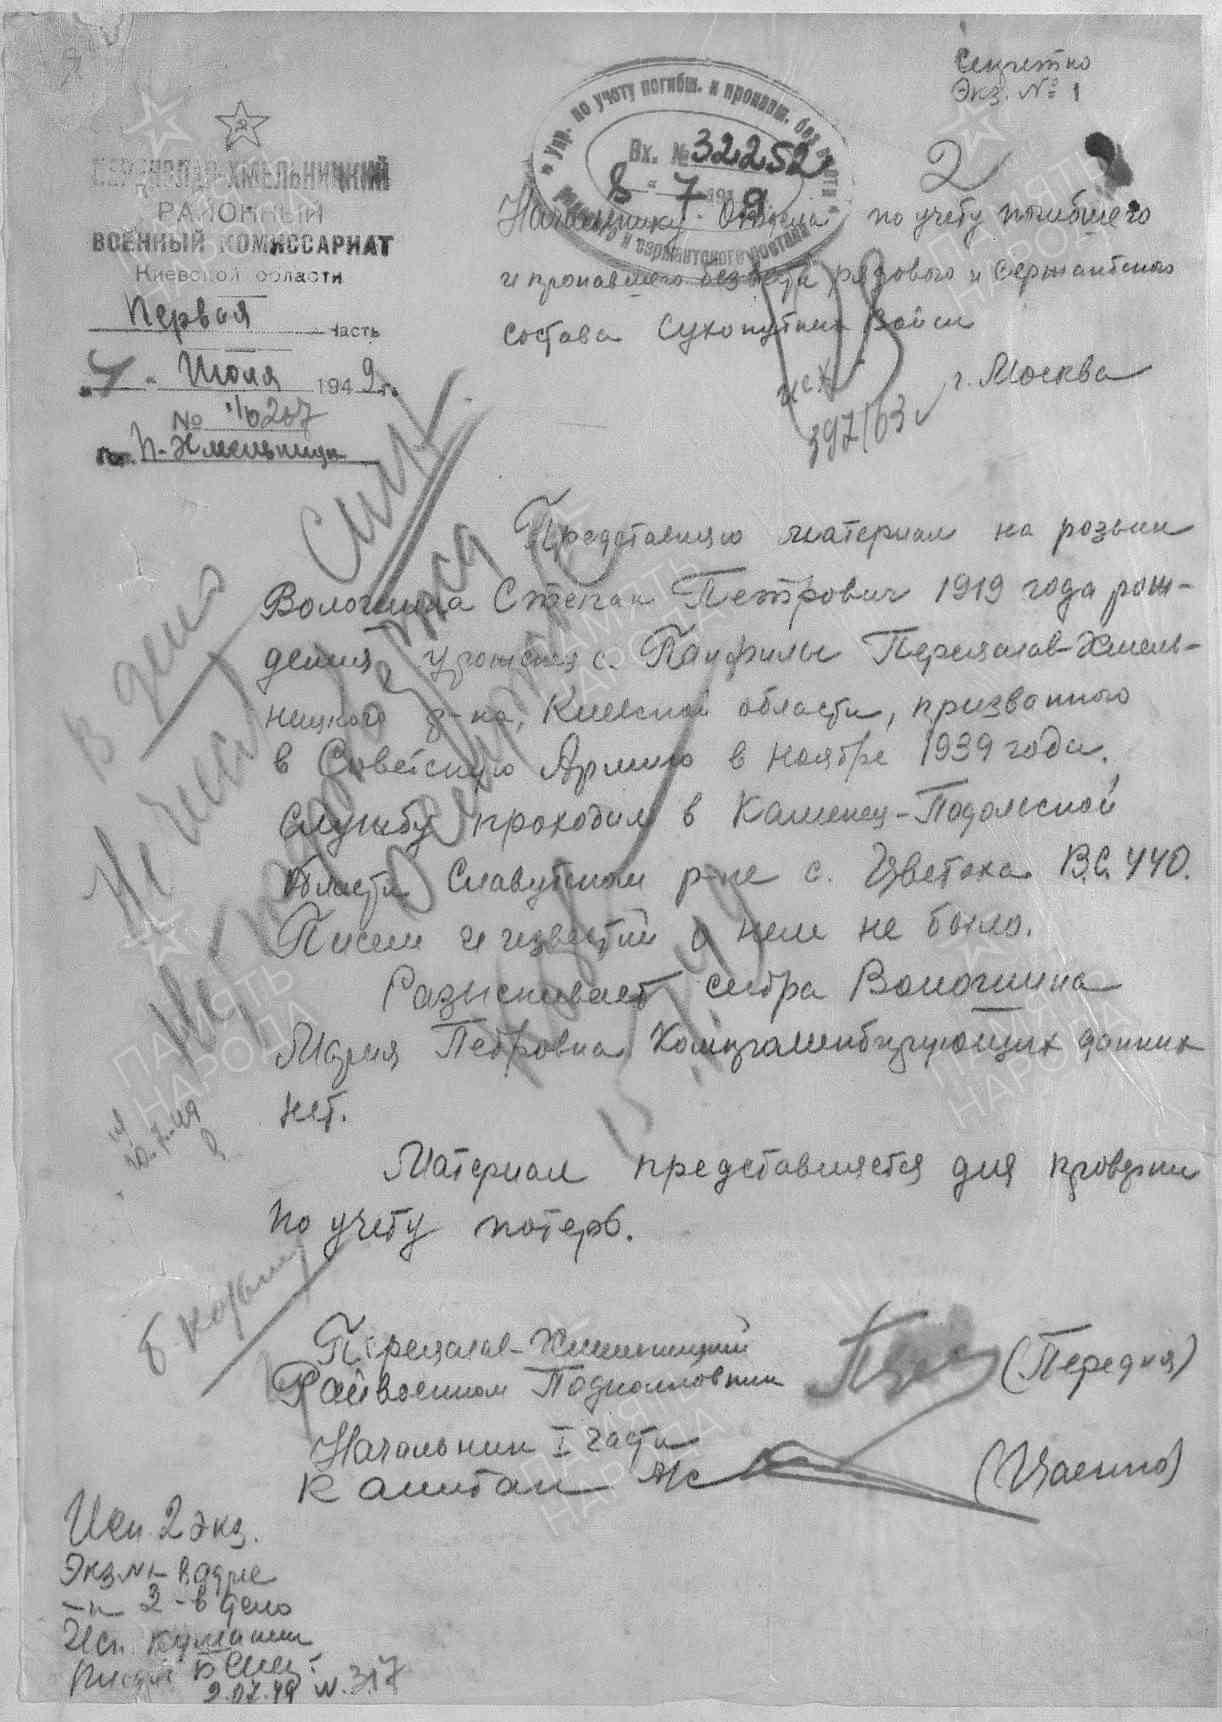 Секретно
Экз. № 1
ПЕРЕЯСЛАВ-ХМЕЛЬНИЦКИЙ
РАЙОННЫЙ
ВОЕННЫЙ КОМИССАРИАТ
Киевской области
Первая часть
"4" Июля 1949 г.
№ 1/0207
П-Хмельницк
Упр. по учету погибш. и пропавш. без вести
рядового и сержантского состава
Вх. № 32252
8 " 7 1949
2
Начальнику Отдела по учету погибшего
и пропавшего без вести рядового и сержантского
состава Сухопутных Войск
г. Москва
исх
397/63
Представляю материал на розыск
Степан Петрович 1919 года рож-
дения, уроженец с. Панфилы Переяслав-Хмель-
ницкого р-на, Киевской области, призванного
в Советскую Армию в Ноябре 1939 года.
Службу проходил в Каменец-Подольской
области Славутском р-не с. Цветоха В.С. 440.
Писем и известий о нем не было.
Разыскивает сестра Волошина
Мария Петровна. Компрометирующих данных
нет.
Материал представляется для проверки
по учету потерь.
В дело
Не числ
20.7.49
Переяслав-Хмельницкий
Райвоенком Подполковник (Передня)
Начальник I части
Капитан А/с
Исп. 2 экз.
Экз № 1 - в адрес
-"- 2 - в дело
Исп.
2.07.49 N. 317
ПАМЯТЬ
НАРОДА